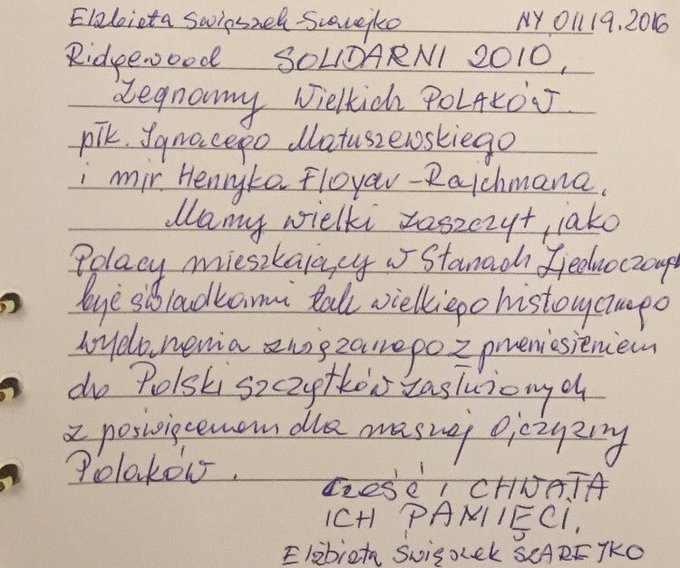 Elżbieta Swiąszek-Scarejko NY 01.19.2016
Ridgewood SOLIDARNI 2010.
Żegnamy Wielkich POLAKÓW
płk. Ignacego Matuszewskiego
i mjr. Henryka Floyar-Rajchmana.
Mamy wielki zaszczyt, jako
Polacy mieszkający w Stanach Zjednoczonych
być świadkami tak wielkiego historycznego
wydarzenia związanego z przeniesieniem
do Polski szczątków zasłużonych
z poświęceniem dla naszej Ojczyzny
Polaków.
CZEŚĆ I CHWAŁA
ICH PAMIĘCI.
Elżbieta Święszek SCAREJKO